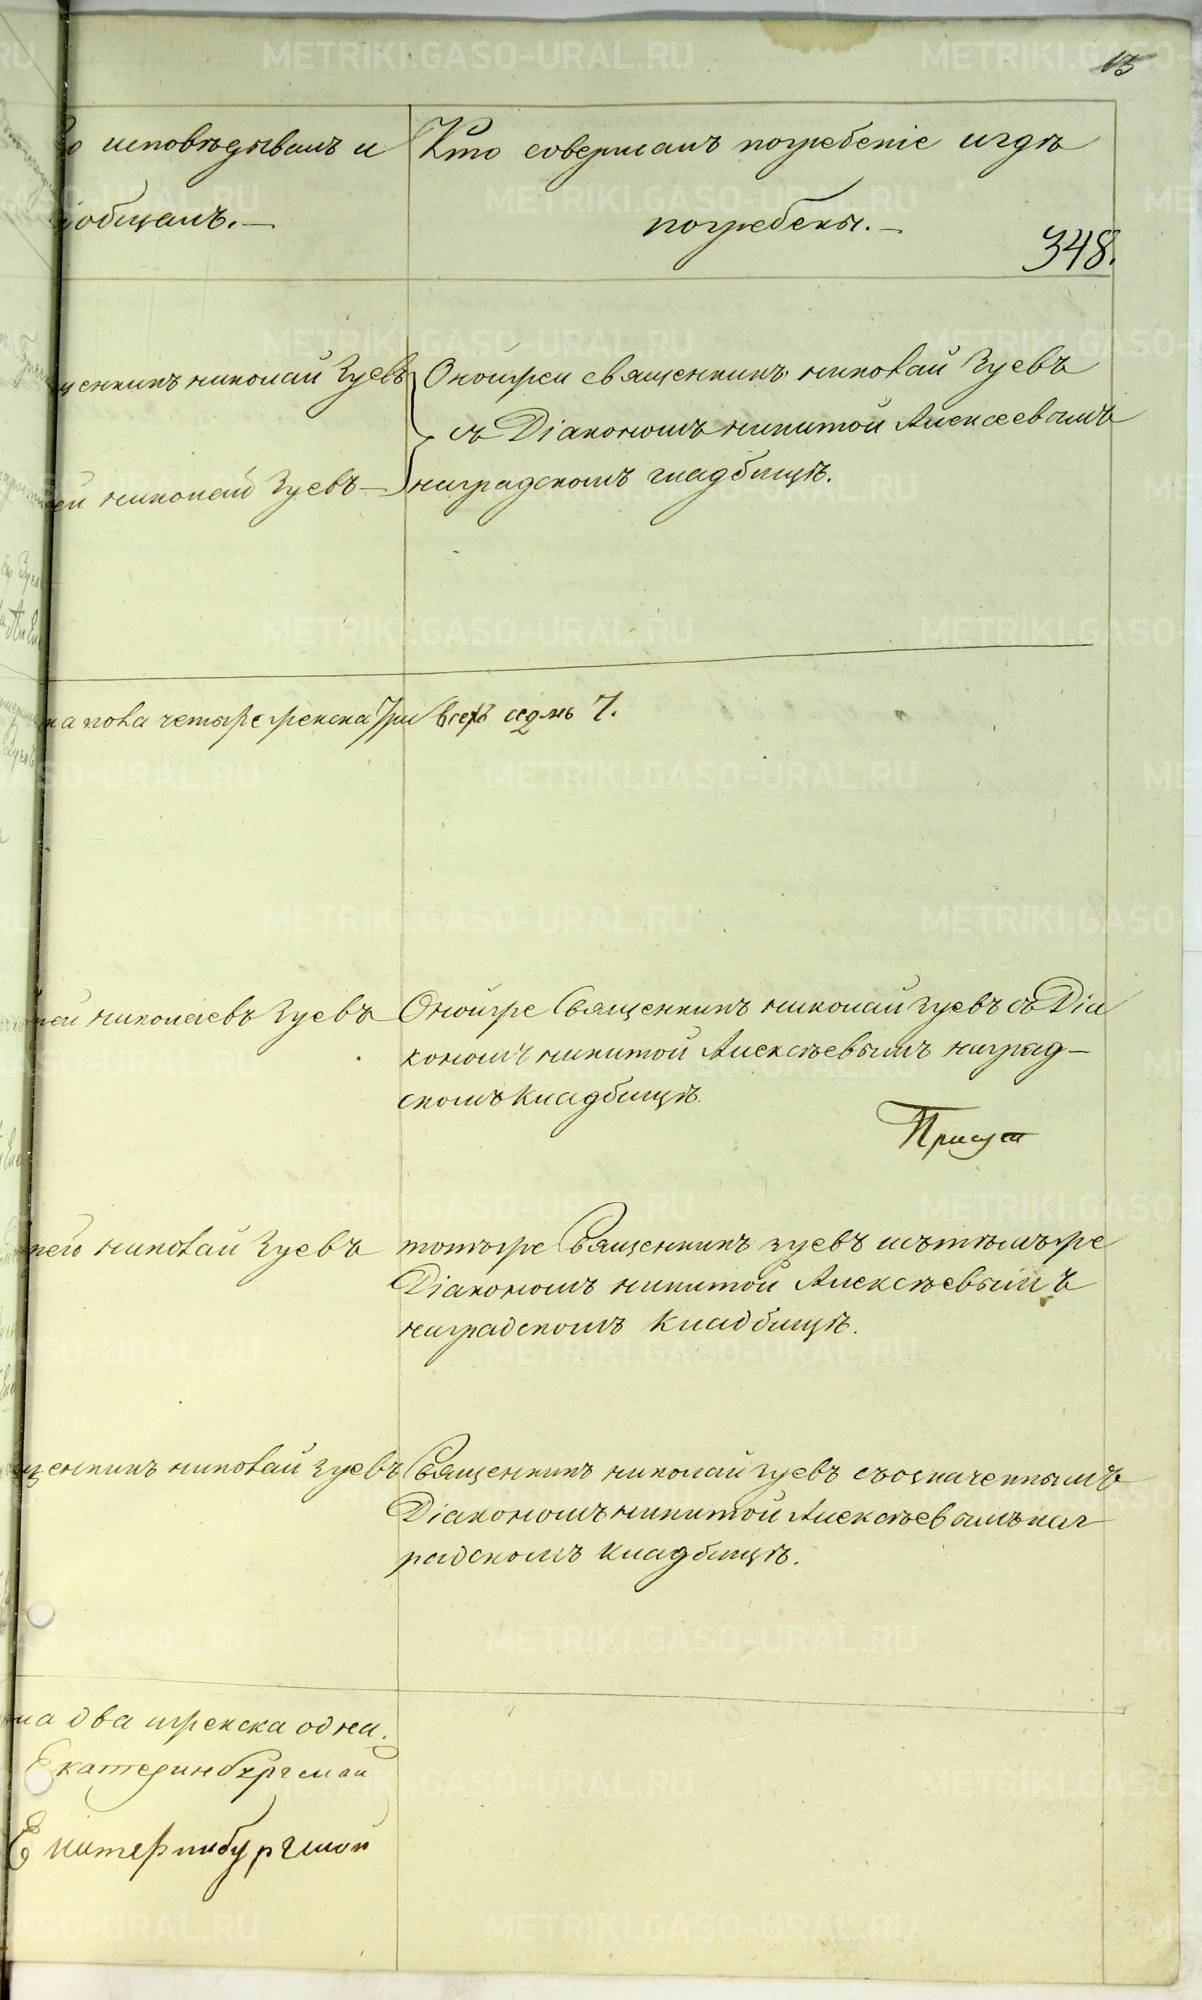 13
исповѣдывалъ и
Кто совершалъ погребеніе и гдѣ
общалъ.—
погребены.—
348.
щенникъ Николай Зуевъ
Оной же священникъ Николай Зуевъ
съ Діакономъ Никитой Алексеевымъ
ей Николай Зуевъ—
на градскомъ кладбищѣ.
ка пола четыре женска три всехъ седмь 7.
рей Николаевъ Зуевъ
Оной же Священникъ Николай Зуевъ съ Діа
кономъ Никитой Алексѣевымъ на град-
скомъ Кладбищѣ.
Присут
рей Николай Зуевъ
тотъ же Священникъ Зуевъ и съ тѣмъ же
Діакономъ Никитой Алексѣевымъ
на градскомъ Кладбищѣ.
щенникъ Николай Зуевъ
Священникъ Николай Зуевъ съ означеннымъ
Діакономъ Никитой Алексѣевымъ на г
радскомъ Кладбищѣ.
ка два и женска одна.
Екатеринбургской
Екатеринбургской
METRIKI.GASO-URAL.RU